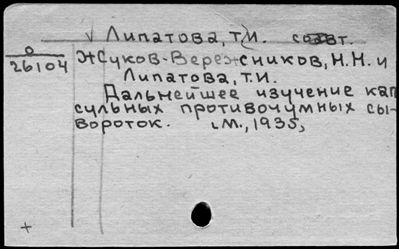 √ Липатова, Т.И. соавт.
0
26104
Жуков-Вережников, Н.Н. и
Липатова, Т.И.
Дальнейшее изучение кап
сульных противочумных сы-
вороток. М., 1935,
+